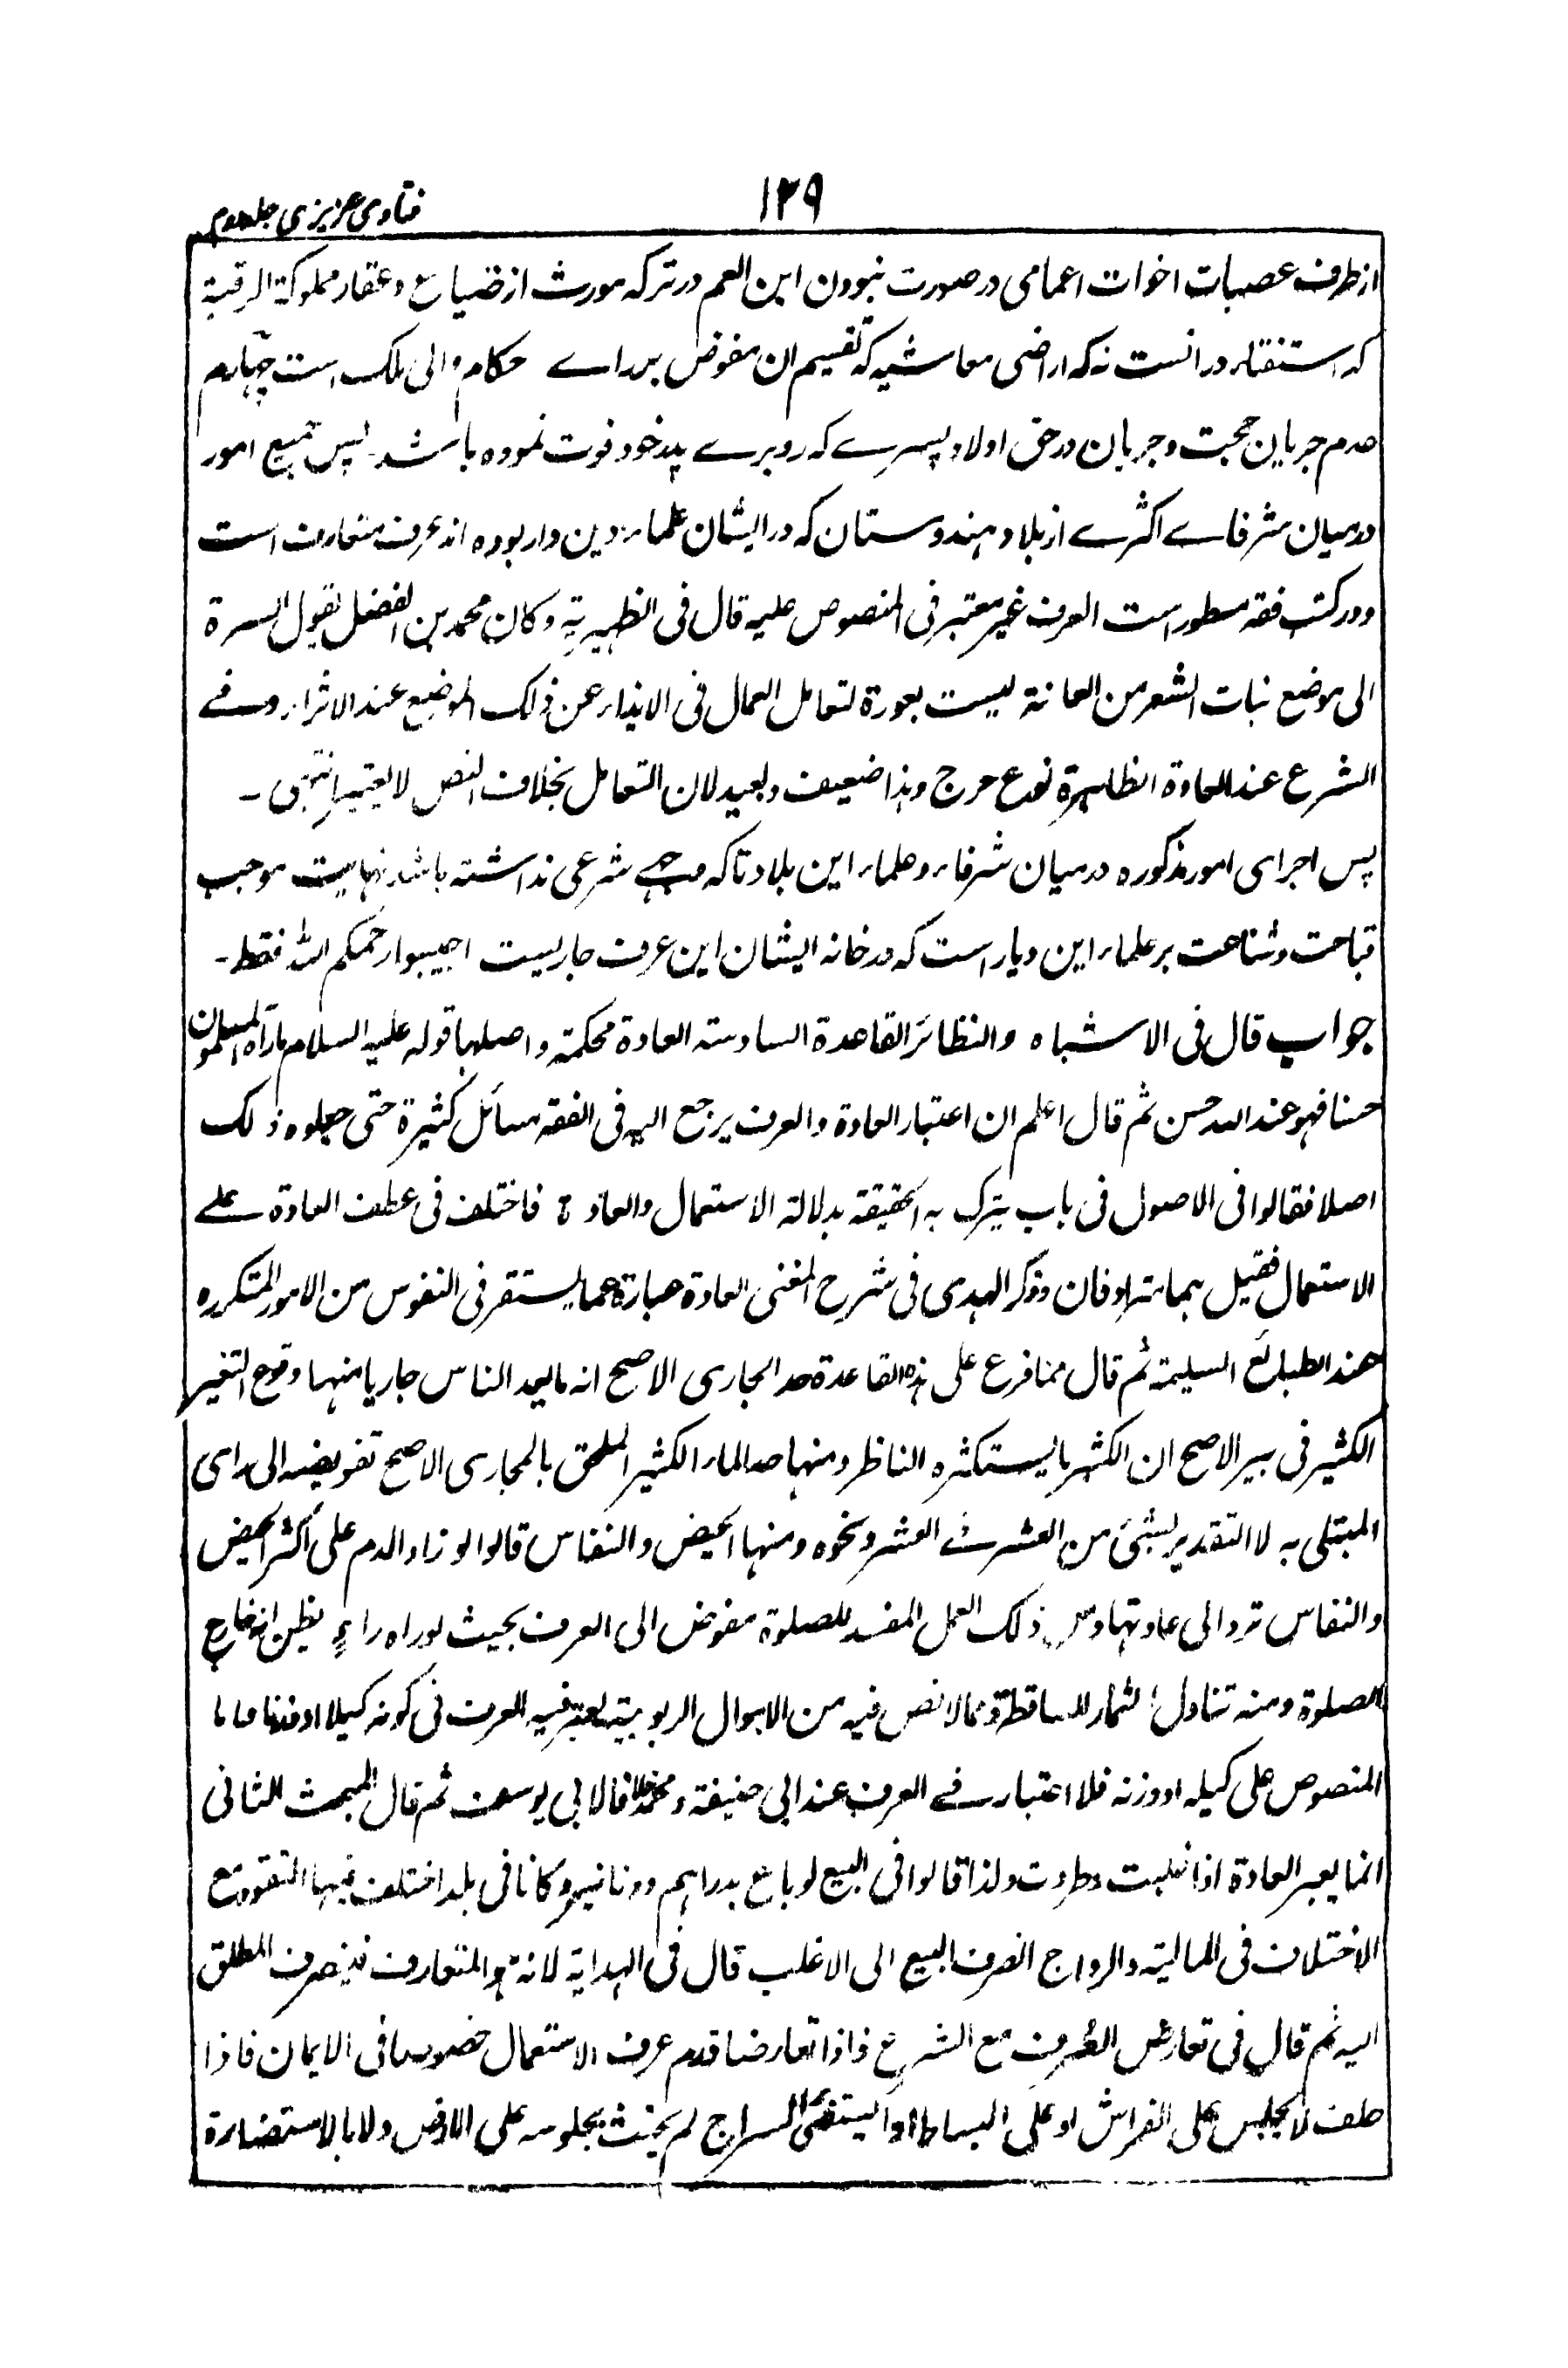 فتاوی عزیزی جلد دوم
۱۲۹
از طرف عصبات اخوات اعمامی در صورت نبودن ابن العم در ترکہ مورث از ضیاع و عقار مملوکۃ الرقبۃ
کہ استفتاء در انست نہ کہ اراضی معاشیہ کہ تقسیم ان مفوض براے حکام والی ملک است چہارم
عدم جریان حجت و جریان در حق اولاد پسرے کہ روبرے پدر خود فوت نمودہ باشد۔ پس جمیع امور
درمیان شرفاے اکثرے از بلاد ہندوستان کہ در ایشان علماء دین دار بودہ اند عرف متعارف است
و در کتب فقہ مسطور است العرف غیر معتبر فی المنصوص علیہ قال فی الظہیریۃ و کان محمد بن الفضل یقول السرۃ
الی موضع نبات الشعر من العانۃ لیست بعورۃ لتعامل العمال فی الابداء عن ذلک الموضع عند الاتزار وفے
الشرع عند العادۃ الظاہرۃ نوع حرج وہذا ضعیف و بعید لان التعامل بخلاف النص لا یعتبر انتہی ۔
پس اجرای امور مذکورہ درمیان شرفاء و علماء این بلاد تا کہ وجہے شرعی نداشتہ باشد نہایت موجب
قباحت و شناعت بر علماء این دیار است کہ در خانہ ایشان این عرف جاریست اجیبوا رحمکم اللہ فقط۔
جواب قال فی الاشباہ والنظائر القاعدۃ السادستہ العادۃ محکمۃ و اصلہا قولہ علیہ السلام ماراٰہ المسلمون
حسنا فہو عند اللہ حسن ثم قال اعلم ان اعتبار العادۃ والعرف یرجع الیہ فی الفقہ مسائل کثیرۃ حتی جعلوہ ذلک
اصلا فقالوا فی الاصول فی باب یترک بہ الحقیقۃ بدلالۃ الاستعمال والعادۃ فاختلف فی عطف العادۃ علے
الاستعمال فقیل ہما مترادفان وذکر الہندی فی شرح المغنی العادۃ عبارۃ عما یستقر فی النفوس من الامور المتکررہ
عند الطبائع السلیمۃ ثم قال مما فرع علی ہذہ القاعدۃ حد الجاری الاصح انہ ما یعد الناس جاریا منہا وقوع التغیر
الکثیر فی بیر الاصح ان الکثیر ما یستکثرہ الناظر ومنہا حد الماء الکثیر الملحق بالجاری الاصح تفویضہ الی رای
المبتلی بہ لا التقدیر بشئ من العشر فے العشر ونحوہ ومنہا الحیض والنفاس قالوا لو زاد الدم علی اکثر الحیض
والنفاس ترد الی عادتہا و من ذلک العمل المفسد للصلوۃ مفوض الی العرف بحیث لو راہ راءٍ یظن انہ خارج
الصلوۃ ومنہ تناول الثمار الساقطۃ و مما لا نص فیہ من الاموال الربویۃ یعتبر فیہ العرف فی کونہ کیلا او وزنا واما
المنصوص علی کیلہ او وزنہ فلا اعتبار فے العرف عند ابی حنیفۃ و محمد خلافا لابی یوسف ثم قال المبحث الثانی
انما یعبر العادۃ اذا غلبت و طردت ولذا قالوا فی البیع لو باع بدراہم و دنانیر و کانا فی بلد اختلف فیہا النقود مع
الاختلاف فی المالیۃ والرواج انصرف البیع الی الاغلب قال فی الہدایۃ لانہ ہو المتعارف فینصرف المطلق
الیہ ثم قال فی تعارض العرف مع الشرع فاذا تعارضا قدم عرف الاستعمال خصوصا فی الایمان فاذا
حلف لا یجلس علی الفراش او علی البساط او لا یستضئ بالسراج لم یحنث بجلوسہ علی الارض ولا بالاستضارۃ